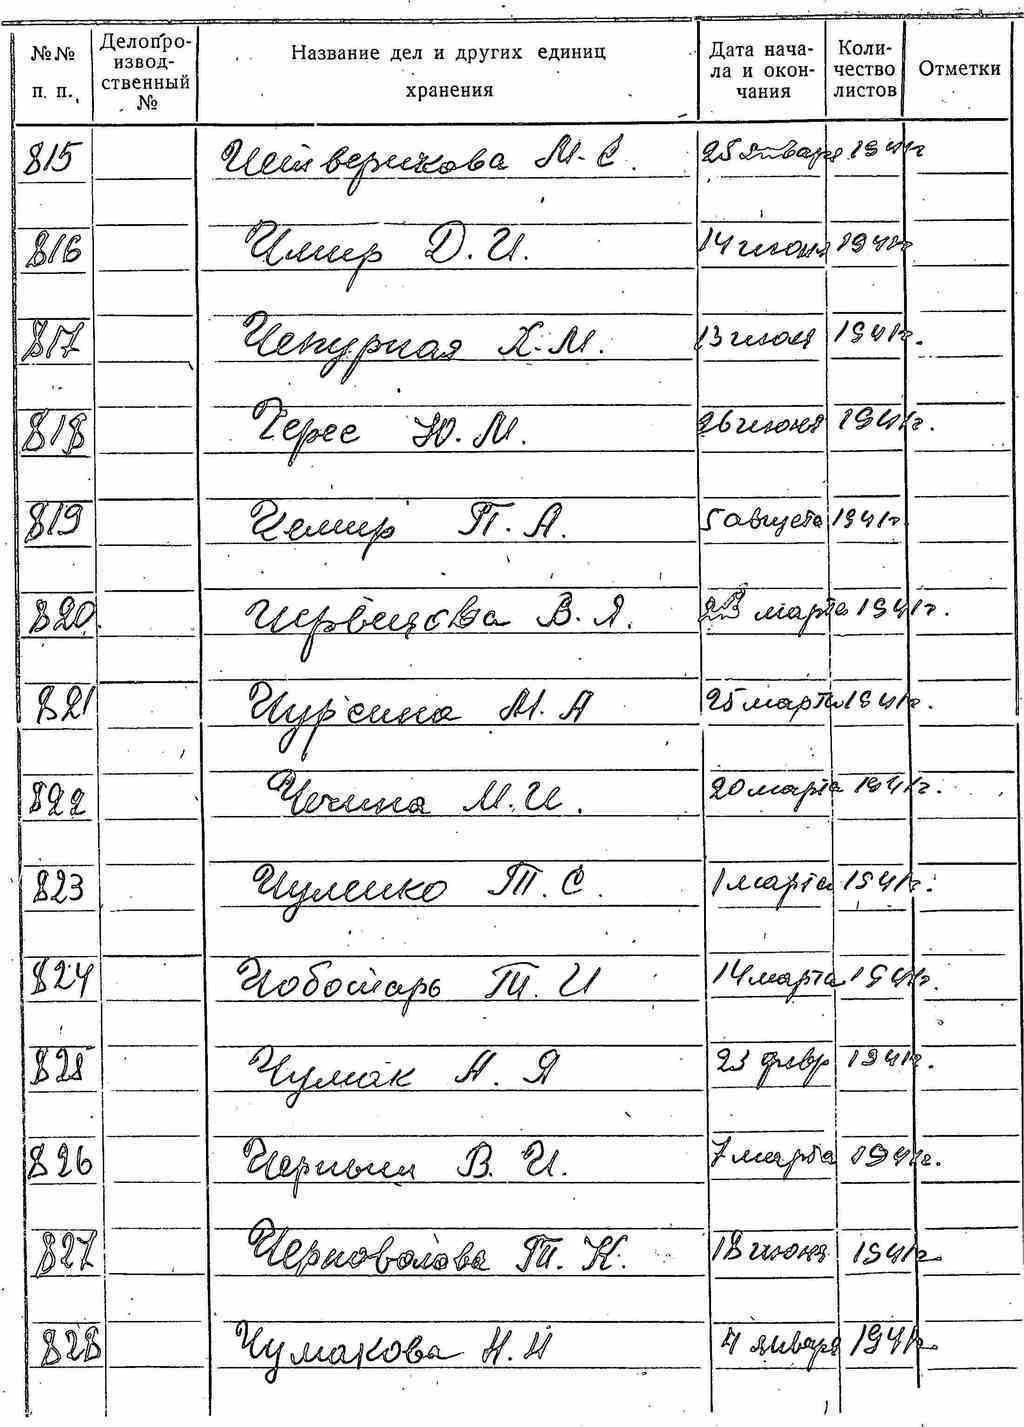 №№ п. п. Делопроизводственный № Название дел и других единиц хранения Дата начала и окончания Количество листов Отметки
815 Четверикова М. С. 25 января 1941г
816 Чмир Д. И. 14 июня 1941г
817 Чепурная Х. М. 13 июня 1941г.
818 Черес Ю. М. 26 июня 1941г.
819 Чемир П. А. 5 августа 1941г
820 В. Я. марта 1941г.
821 Чурсина М. А 25 марта 1941г.
822 Чечина М. И. 20 марта 1941г.
823 Чуленко Т. С. 1 марта 1941г.
824 Чоботарь Т. И 14 марта 1941г.
825 Чумак А. Я 23 февр 1941г.
826 Черный В. И. 7 марта 1941г.
827 Черноволова Т. К. 18 июня 1941г
828 Чумакова Н. Н 4 января 1941г